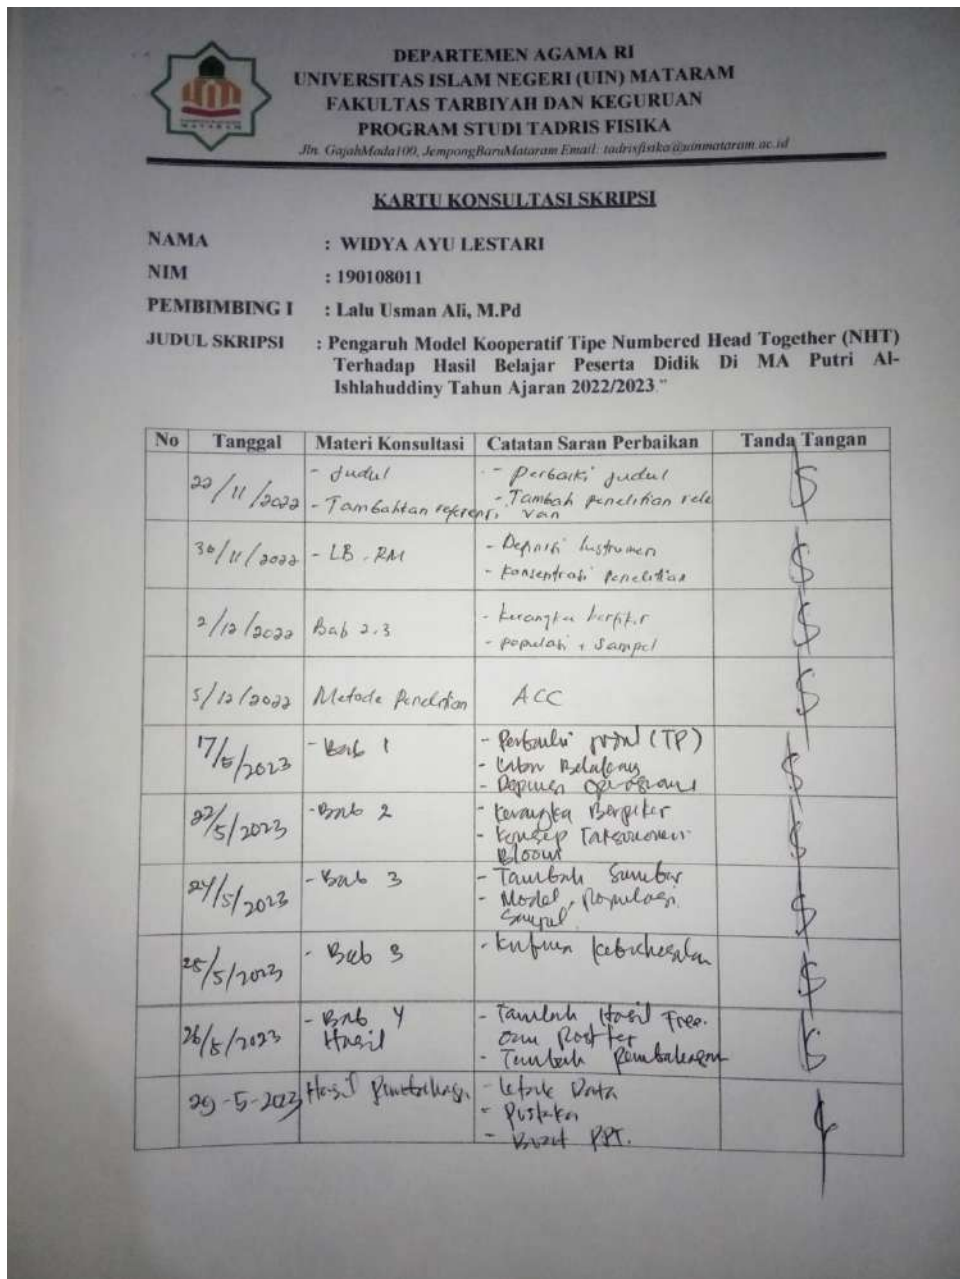 DEPARTEMEN AGAMA RI
UNIVERSITAS ISLAM NEGERI (UIN) MATARAM
FAKULTAS TARBIYAH DAN KEGURUAN
PROGRAM STUDI TADRIS FISIKA
Jln. GajahMada100, JempongBaruMataram Email: tadrisfisika@uinmataram.ac.id
MATARAM
KARTU KONSULTASI SKRIPSI
NAMA : WIDYA AYU LESTARI
NIM : 190108011
PEMBIMBING I : Lalu Usman Ali, M.Pd
JUDUL SKRIPSI : Pengaruh Model Kooperatif Tipe Numbered Head Together (NHT)
Terhadap Hasil Belajar Peserta Didik Di MA Putri Al-
Ishlahuddiny Tahun Ajaran 2022/2023."
No Tanggal Materi Konsultasi Catatan Saran Perbaikan Tanda Tangan
22/11/2022 - Judul - Perbaiki judul
- Tambahkan referensi - Tambah penelitian rele
van
30/11/2022 - LB. RM - Depinisi Instrumen
- Konsentrasi Penelitian
2/12/2022 Bab 2.3 - kerangka berfikir
- populasi + Sampel
5/12/2022 Metode Penelitian ACC
17/5/2023 - Bab 1 - Perbaiki (TP)
- Latar Belakang
- Depinisi
22/5/2023 - Bab 2 - Kerangka Berpikir
- Konsep
Bloom
24/5/2023 - Bab 3 - Tambah Sumber
- Model, Populasi
Sampel
25/5/2023 - Bab 3
26/5/2023 - Bab 4 - Tambah Hasil Free.
Hasil
- Tambah
29-5-2023 Hasil - Data
- Pustaka
- Buat PPT.